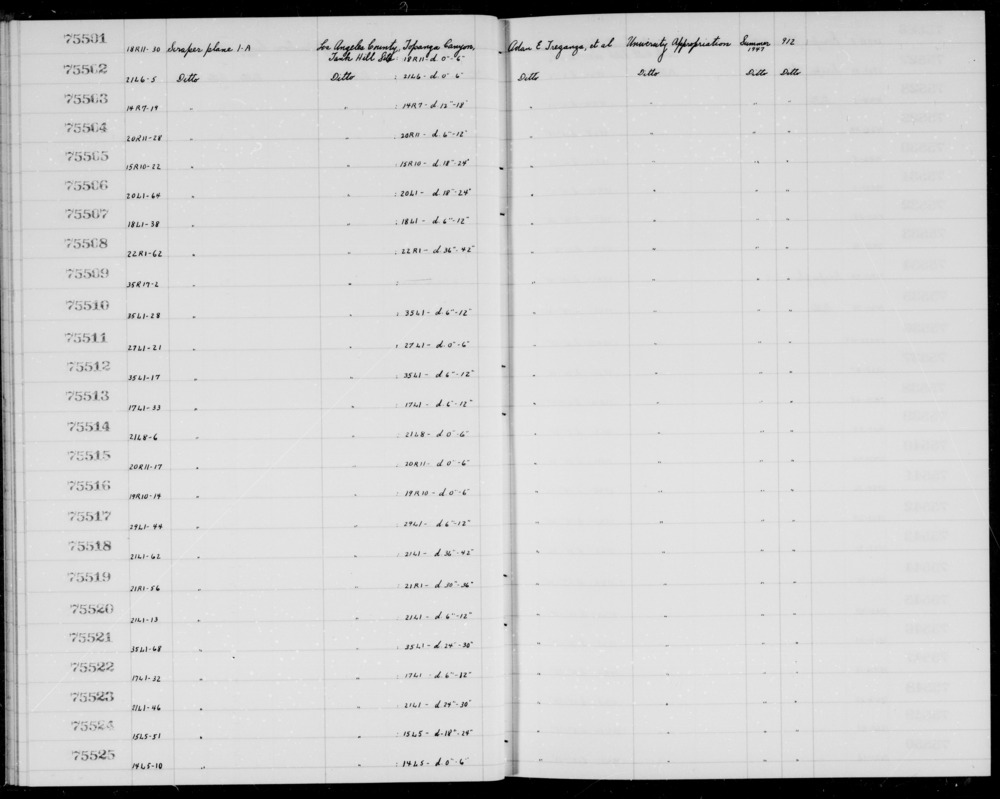 75501 18R11-30 Scraper plane 1-A Los Angeles County, Topanga Canyon, Adan E. Treganza, et al University Appropriation Summer 1947 912
Tank Hill Site : 18R11 d 0"-6"
75502 21L6-5 Ditto Ditto : 21L6 - d. 0" 6" Ditto Ditto Ditto Ditto
75503 14R7-19 " " : 14R7 - d 12"-18" " " " "
75504 20R11-28 " " : 20R11 - d. 6"-12" " " " "
75505 15R10-22 " " : 15R10 - d. 18"-24" " " " "
75506 20L1-64 " " : 20L1 - d. 18"-24" " " " "
75507 18L1-38 " " : 18L1 - d 6"-12" " " " "
75508 22R1-62 " " : 22R1 - d 36"-42" " " " "
75509 35R17-2 " " : — " " " "
75510 35L1-28 " " : 35L1 - d 6"-12" " " " "
75511 27L1-21 " " : 27L1 - d. 0"-6" " " " "
75512 35L1-17 " " : 35L1 - d 6"-12" " " " "
75513 17L1-33 " " : 17L1 - d. 6"-12" " " " "
75514 21L8-6 " " : 21L8 - d 0"-6" " " " "
75515 20R11-17 " " : 20R11 - d 0"-6" " " " "
75516 19R10-14 " " : 19R10 - d 0"-6" " " " "
75517 29L1-44 " " : 29L1 - d 6"-12" " " " "
75518 21L1-62 " " : 21L1 - d. 36"-42" " " " "
75519 21R1-56 " " : 21R1 - d 30"-36" " " " "
75520 21L1-13 " " : 21L1 - d 6"-12" " " " "
75521 35L1-68 " " : 35L1 - d 24"-30" " " " "
75522 17L1-32 " " : 17L1 - d. 6"-12" " " " "
75523 21L1-46 " " : 21L1 - d 24"-30" " " " "
75524 15L5-51 " " : 15L5 - d-18"-24" " " " "
75525 14L5-10 " " : 14L5 - d. 0"-6" " " " "